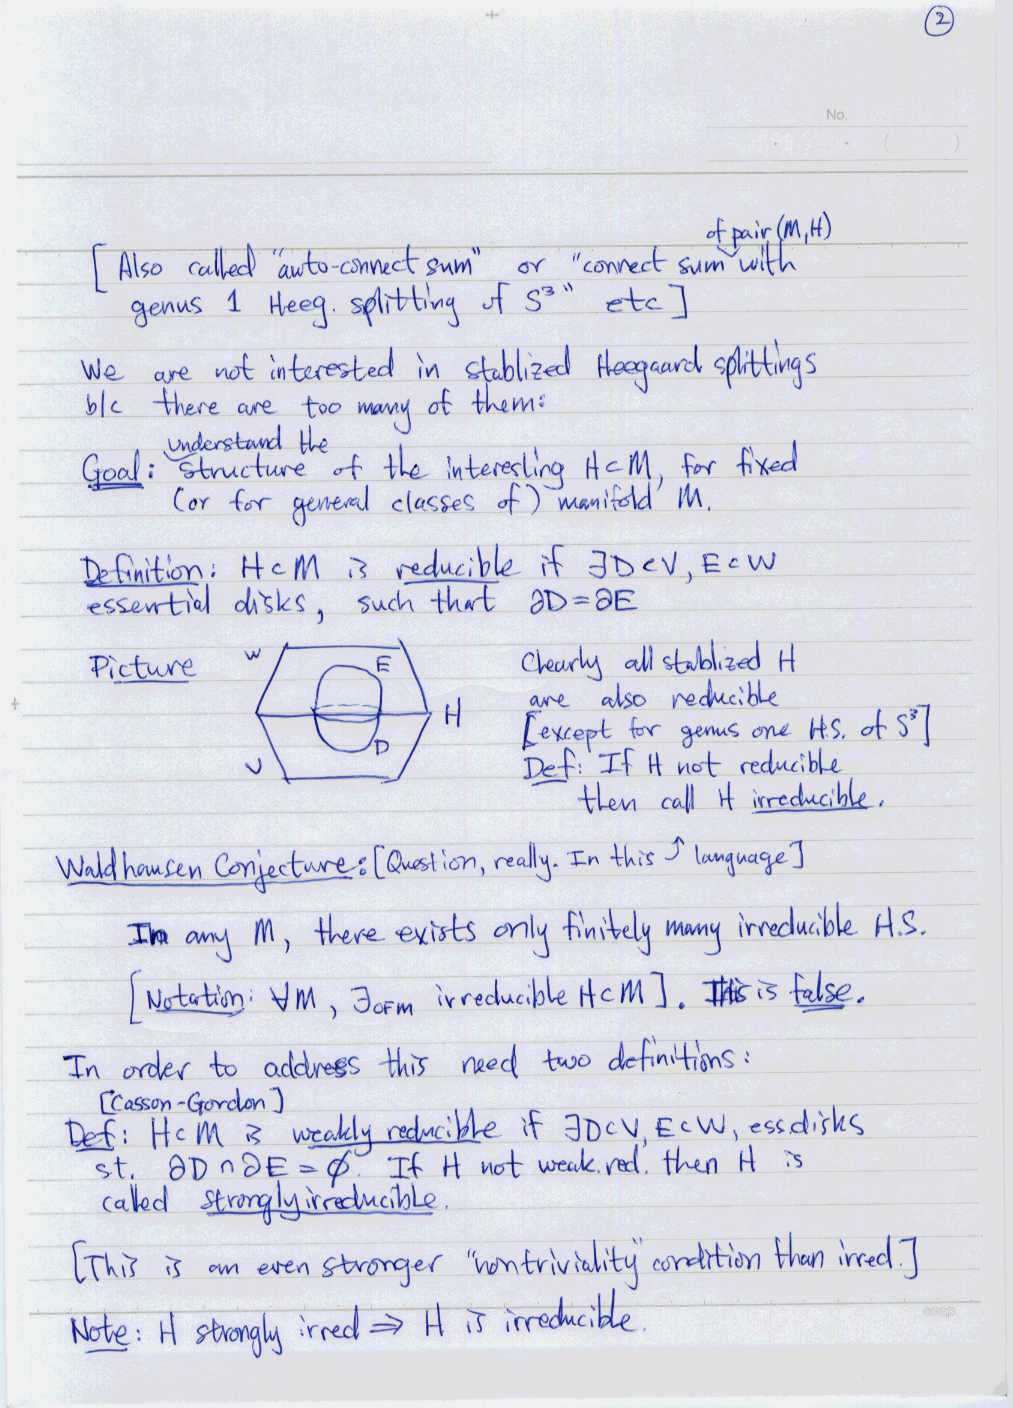 2
No.
of pair (M,H)
[Also called "auto-connect sum" or "connect sum with
genus 1 Heeg. splitting of S³" etc]
We are not interested in stablized Heegaard splittings
b/c there are too many of them:
understand the
Goal: structure of the interesting H⊂M, for fixed
(or for general classes of) manifold M.
Definition: H⊂M is reducible if ∃D⊂V, E⊂W
essential disks, such that ∂D=∂E
Picture W E H D V
Clearly all stablized H
are also reducible
[except for genus one H.S. of S³]
Def: If H not reducible
then call H irreducible.
Waldhausen Conjecture: [Question, really. In this ↑ language]
In any M, there exists only finitely many irreducible H.S.
[Notation: ∀M, ∃OFM irreducible H⊂M]. This is false.
In order to address this need two definitions:
[Casson-Gordon]
Def: H⊂M is weakly reducible if ∃D⊂V, E⊂W, ess disks
st. ∂D∩∂E=∅. If H not weak. red. then H is
called strongly irreducible.
[This is an even stronger "nontriviality" condition than irred.]
Note: H strongly irred ⇒ H is irreducible.